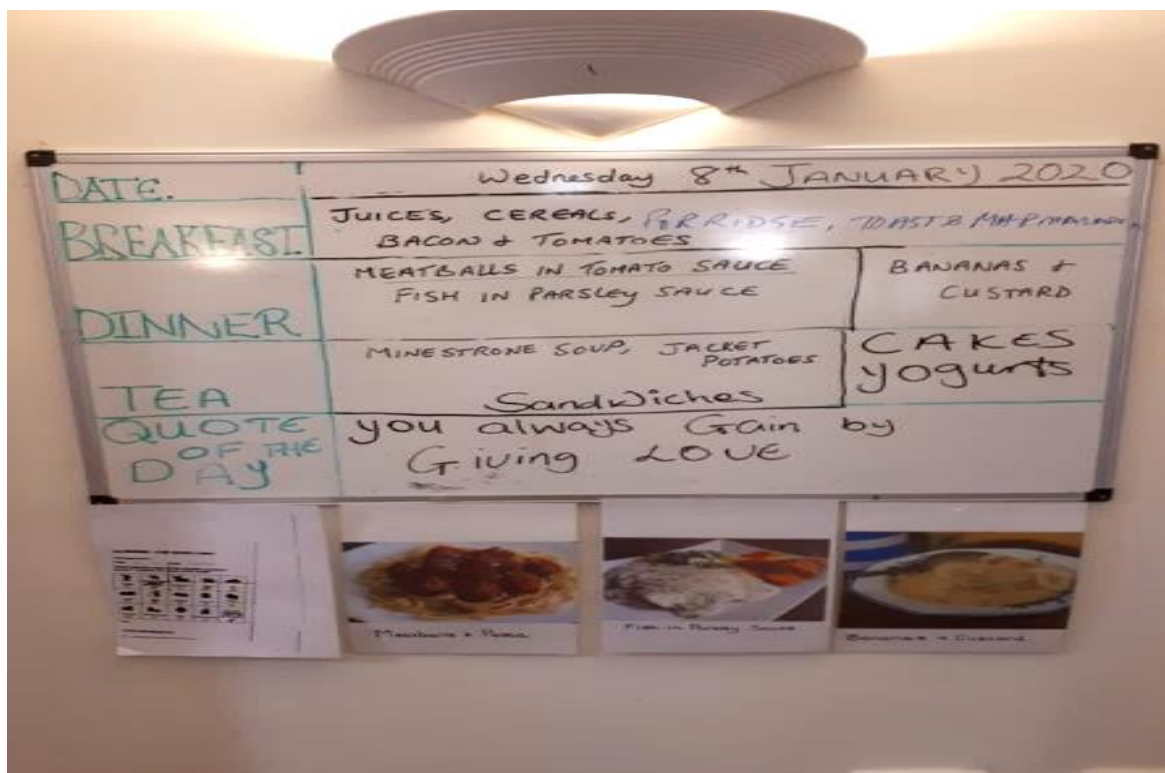 DATE.
Wednesday 8th JANUARY 2020
BREAKFAST.
JUICES, CEREALS, PORRIDGE, TOAST &
BACON & TOMATOES
DINNER
MEATBALLS IN TOMATO SAUCE
FISH IN PARSLEY SAUCE
BANANAS &
CUSTARD
TEA
MINESTRONE SOUP, JACKET
POTATOES
Sandwiches
CAKES
yogurts
QUOTE
OF THE
DAY
you always Gain by
Giving LOVE
Meatballs & Pasta
Fish in Parsley Sauce
Bananas & Custard